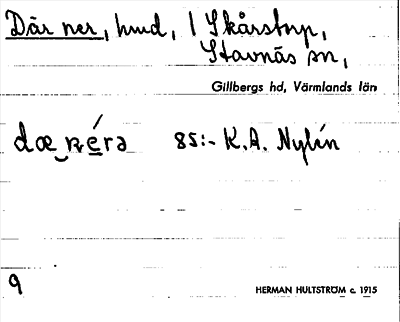 Där ner, hmd, 1 Skårstorp,
Stavnäs sn,
Gillbergs hd, Värmlands län
85:- K.A. Nylin
9
HERMAN HULTSTRÖM c. 1915